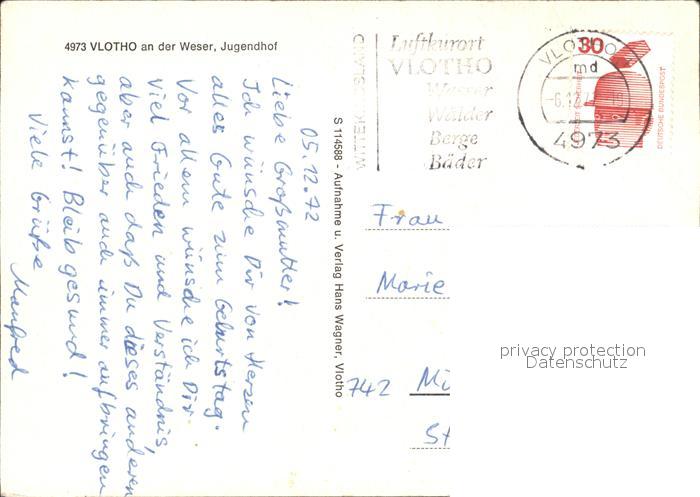 4973 VLOTHO an der Weser, Jugendhof
05.12.72
Liebe Großmutter!
Ich wünsche Dir von Herzen
alles Gute zum Geburtstag.
Vor allem wünsche ich Dir
viel Frieden und Verständnis,
aber auch daß Du dieses anderen
gegenüber auch immer aufbringen
kannst! Bleib gesund!
Viele Grüße
Manfred
S 114588 - Aufnahme u. Verlag Hans Wagner, Vlotho
Luftkurort
VLOTHO
Wasser
Wälder
Berge
Bäder
VLOTHO
md
-6.12.
4973
30
DEUTSCHE BUNDESPOST
Frau
Marie
742 Mü
St
privacy protection
Datenschutz